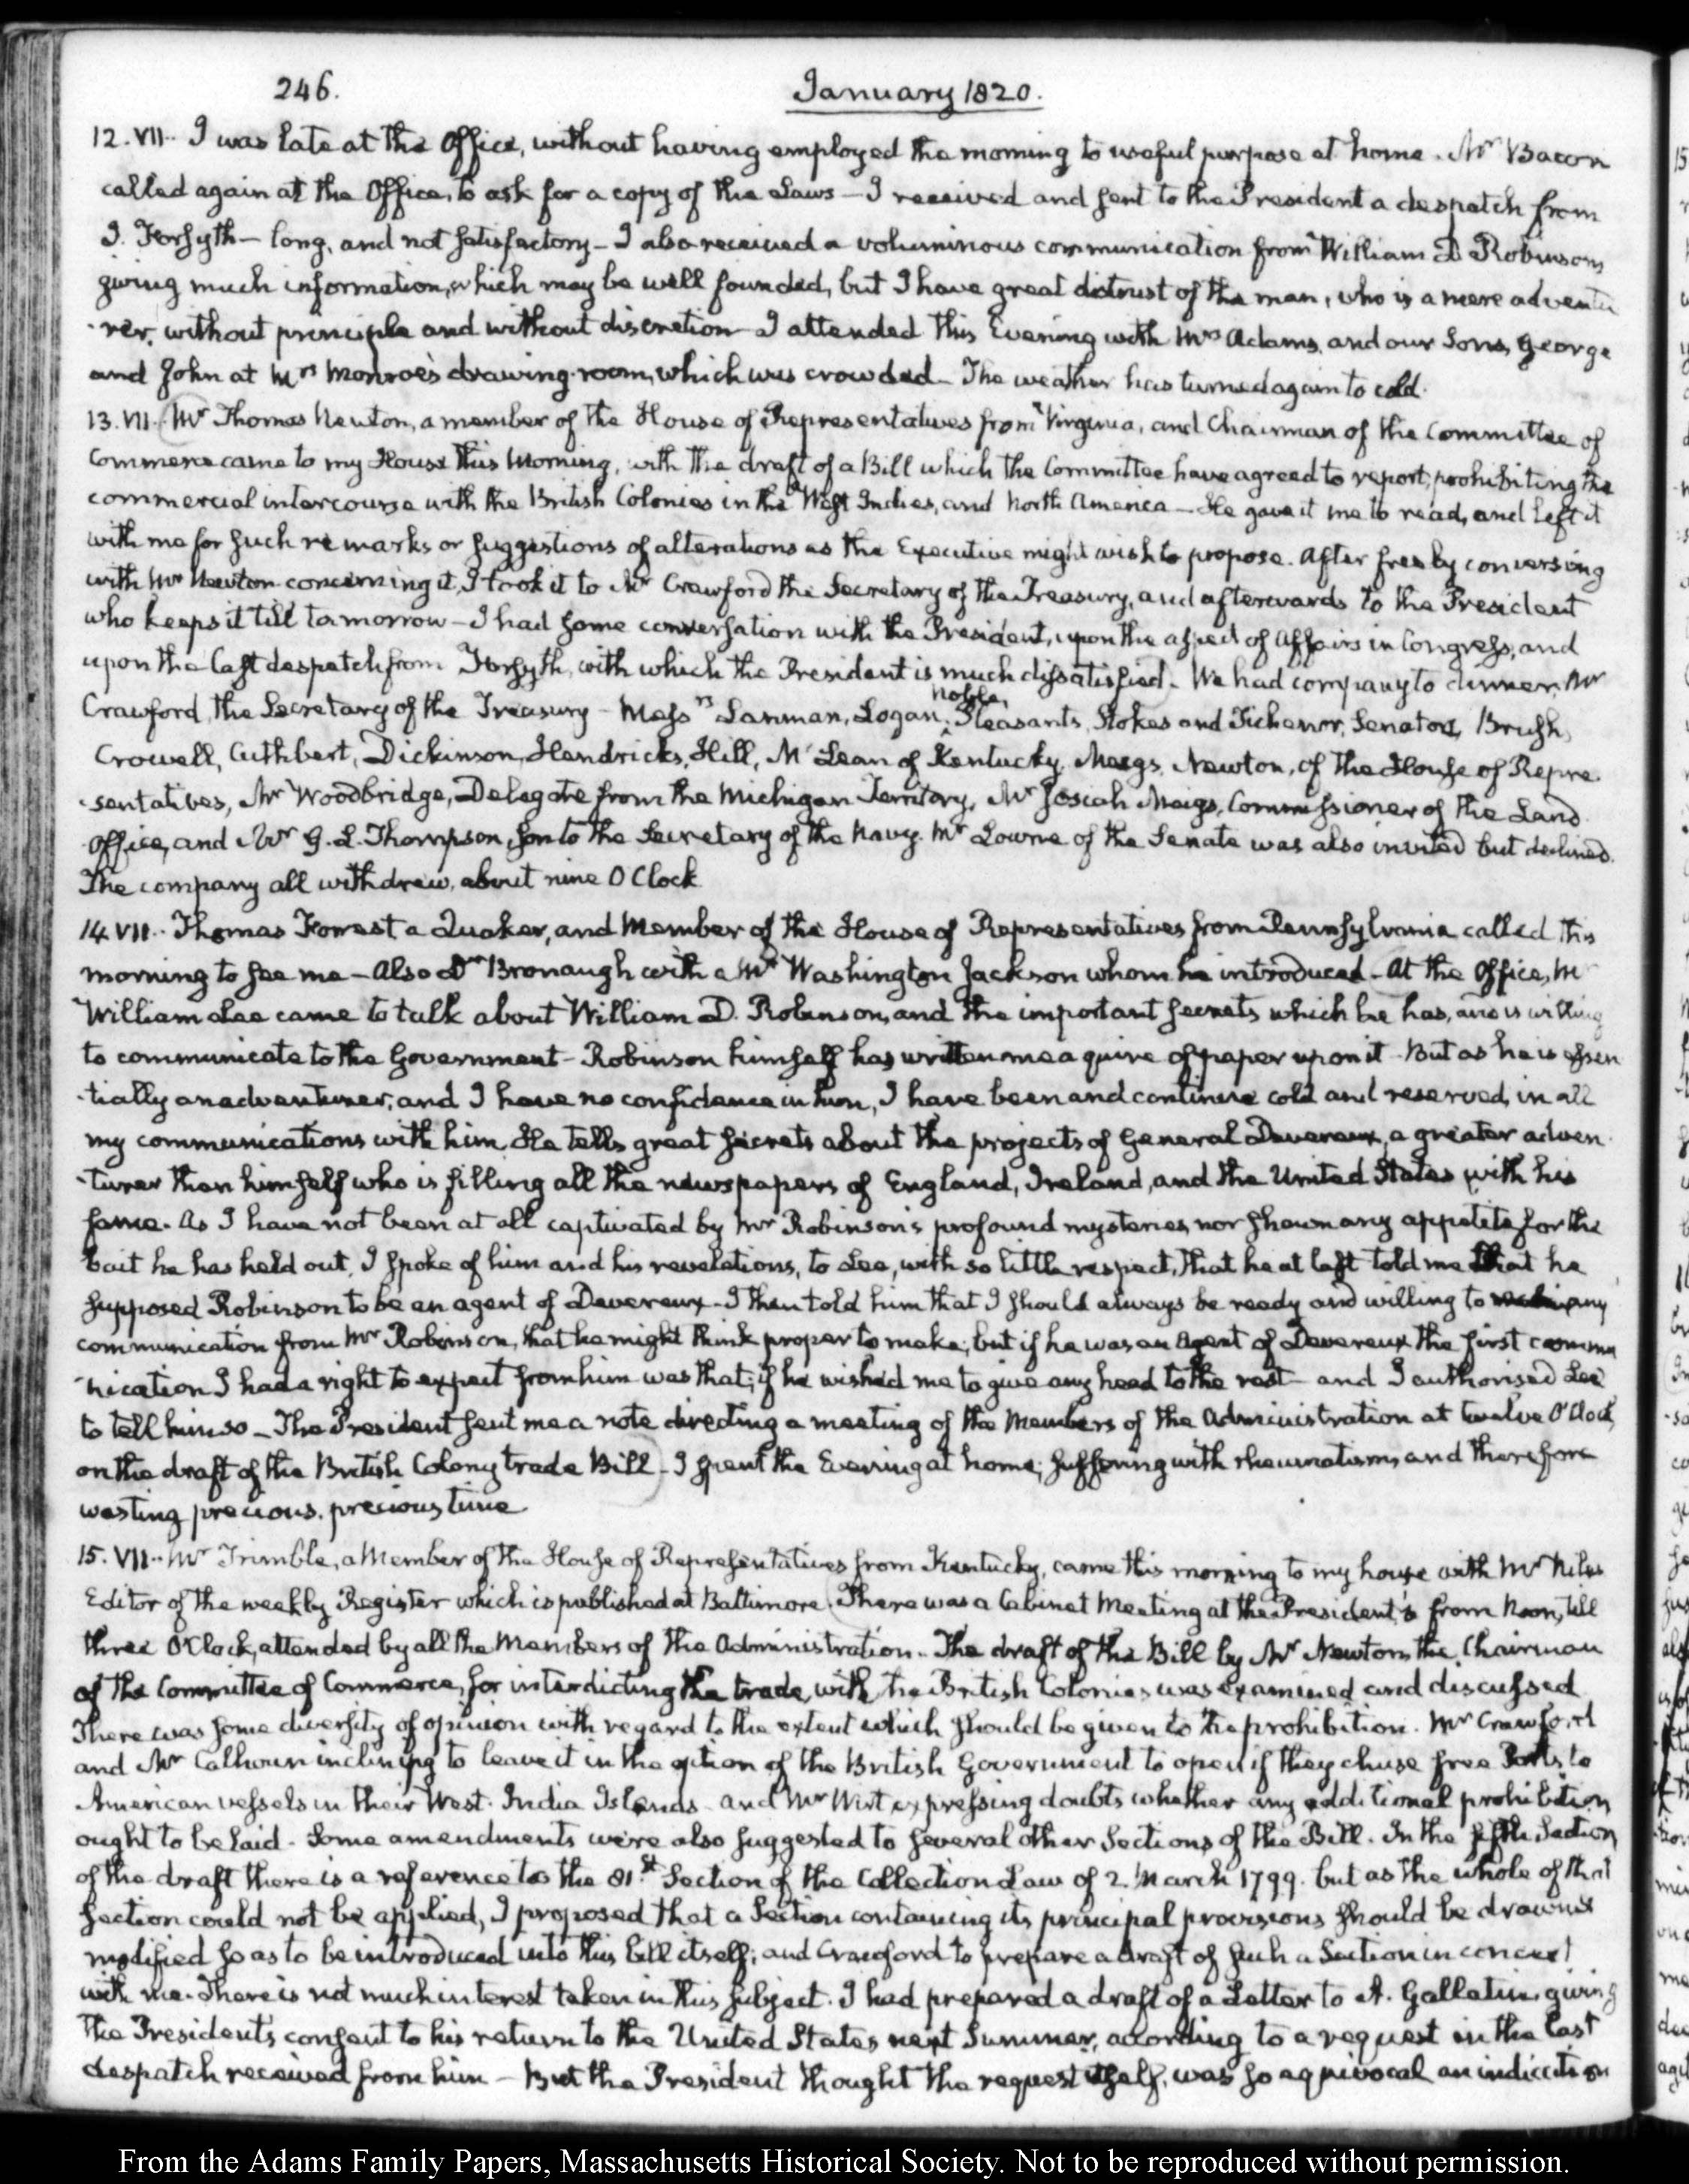 246.
January 1820.
12. VII. I was late at the Office, without having employed the morning to useful purpose at home. Mr Bacon
called again at the Office, to ask for a copy of the Laws — I received and sent to the President a despatch from
J. Forsyth — long, and not satisfactory — I also received a voluminous communication from William D Robinson,
giving much information, which may be well founded, but I have great distrust of the man, who is a mere adventu
-rer, without principle and without discretion — I attended this Evening with Mrs Adams, and our Sons, George
and John at Mrs Monroe's drawing-room, which was crowded — The weather has turned again to cold.
13. VII. Mr Thomas Newton, a member of the House of Representatives from Virginia, and Chairman of the Committee of
Commerce came to my House this Morning, with the draft of a Bill which the Committee have agreed to report, prohibiting the
commercial intercourse with the British Colonies in the West Indies, and North America — He gave it me to read, and left it
with me for such remarks or suggestions of alterations as the Executive might wish to propose. After freely conversing
with Mr Newton concerning it, I took it to Mr Crawford the Secretary of the Treasury, and afterwards to the President
who keeps it till tomorrow — I had some conversation with the President, upon the aspect of Affairs in Congress, and
upon the last despatch from Forsyth, with which the President is much dissatisfied — We had company to dinner, Mr
Crawford, the Secretary of the Treasury — Messrs Lanman, Logan, Noble, Pleasants, Stokes and Tichenor, Senators, Brush,
Crowell, Cuthbert, Dickinson, Hendricks, Hill, McLean of Kentucky, Meigs, Newton, of the House of Repre-
-sentatives, Mr Woodbridge, Delegate from the Michigan Territory, Mr Josiah Meigs, Commissioner of the Land
Office, and Mr G. L. Thompson, son to the Secretary of the Navy. Mr Lowrie of the Senate was also invited but declined.
The company all withdrew, about nine O'Clock
14. VII. Thomas Forrest a Quaker, and Member of the House of Representatives from Pennsylvania called this
morning to see me — Also Dr Bronaugh with a Mr Washington Jackson whom he introduced — At the Office, Mr
William Lee came to talk about William D. Robinson, and the important secrets which he has, and is willing
to communicate to the Government — Robinson himself has written me a quire of paper upon it. But as he is essen
-tially an adventurer, and I have no confidence in him, I have been and continue cold and reserved, in all
my communications with him. He tells great secrets about the projects of General Devereux, a greater adven-
-turer than himself who is filling all the newspapers of England, Ireland, and the United States with his
fame. As I have not been at all captivated by Mr Robinson's profound mysteries, nor shown any appetite for the
bait he has held out, I spoke of him and his revelations, to Lee, with so little respect, that he at last told me that he
supposed Robinson to be an agent of Devereux — I then told him that I should always be ready and willing to any
communication from Mr Robinson, that he might think proper to make; but if he was an Agent of Devereux the first commu
-nication I had a right to expect from him was that; if he wished me to give any heed to the rest — and I authorised Lee
to tell him so — The President sent me a note directing a meeting of the Members of the Administration at twelve O'Clock,
on the draft of the British Colony trade Bill — I spent the Evening at home, suffering with rheumatism, and therefore
wasting precious, precious time
15. VII. Mr Trimble, a Member of the House of Representatives from Kentucky, came this morning to my house with Mr Niles
Editor of the weekly Register which is published at Baltimore. There was a Cabinet Meeting at the President's from Noon, till
three O'Clock, attended by all the Members of the Administration — The draft of the Bill by Mr Newton, the Chairman
of the Committee of Commerce, for interdicting the trade, with the British Colonies was examined and discussed
There was some diversity of opinion with regard to the extent which should be given to the prohibition. Mr Crawford
and Mr Calhoun inclining to leave it in the option of the British Government to open if they chuse free Ports, to
American vessels in their West. India Islands — and Mr Wirt expressing doubts whether any additional prohibition
ought to be laid — Some amendments were also suggested to several other Sections of the Bill. In the fifth Section
of the draft there is a reference to the 81.st Section of the Collection Law of 2. March 1799. but as the whole of that
Section could not be applied, I proposed that a Section containing its principal provisions should be drawn
modified so as to be introduced into this bill itself; and Crawford to prepare a draft of such a Section in concert
with me. There is not much interest taken in this subject. I had prepared a draft of a Letter to A. Gallatin, giving
the President's consent to his return to the United States next Summer, according to a request in the last
despatch received from him — But the President thought the request itself, was so equivocal an indication
From the Adams Family Papers, Massachusetts Historical Society. Not to be reproduced without permission.